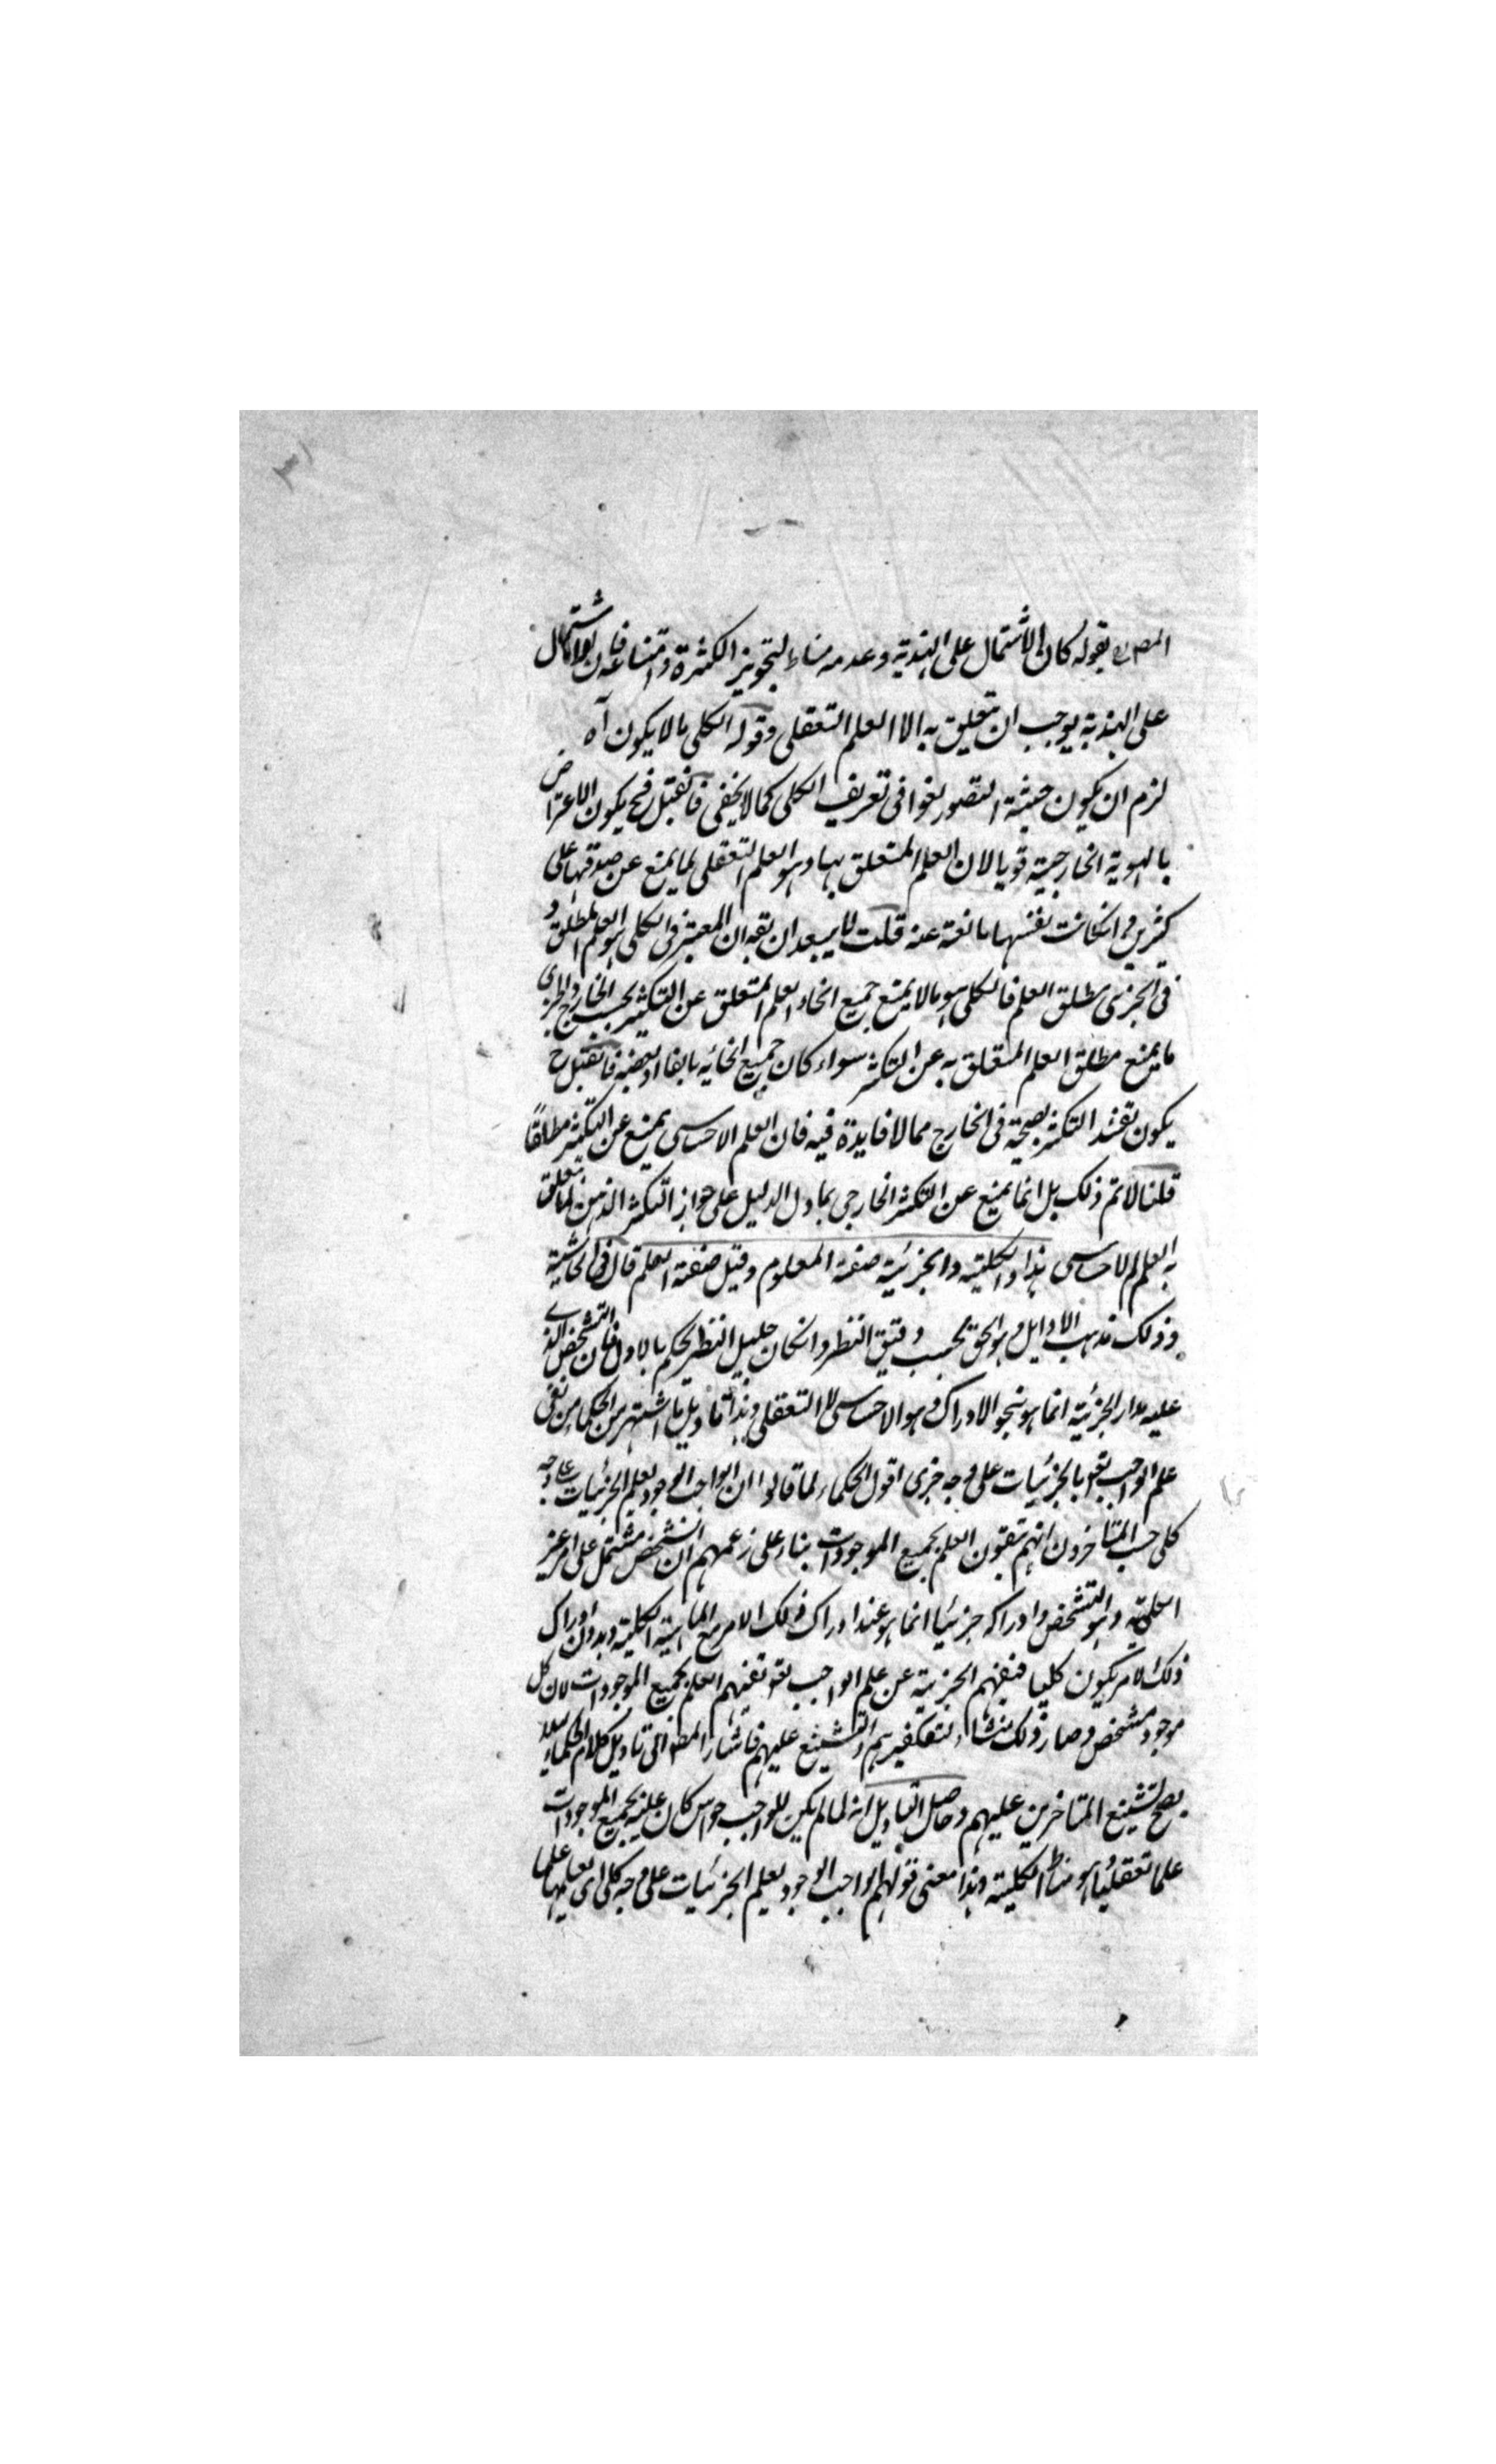 المصره بقوله كان الاشتمال على الهذية وعدمه مناط لتجويز الكثرة وامتناعه فان الاشتمال
على الهذية يوجب ان يتعلق به الا العلم التعقلى وقوله الكلى ما لا يكون آه
لزم ان يكون حيثية التصور لغوا فى تعريف الكلى كما لا يخفى فان قيل فح يكون الاعتراض
بالهوية الخارجية قويا لان العلم المتعلق بها وهو العلم التعقلى لم يمنع عن صدقها على
كثيرين وانكانت نفسها مانعة عنه قلت لا يبعد ان يقه ان المعتبر فى الكلى هو العلم المطلق و
فى الجزى مطلق العلم فالكلى هو ما لا يمنع جميع انحاء العلم المتعلق عن التكثر بحسب الخارج والجزى
ما يمنع مطلق العلم المتعلق به عن التكثر سواء كان جميع انحائه مانعا او بعضه فان قيل ح
يكون تقييد التكثر بصحته فى الخارج مما لا فايدة فيه فان العلم الاحساسى يمنع عن التكثر مطلقًا
قلنا لا نم ذلك بل انما يمنع عن التكثر الخارجى بما دل الدليل على جواز التكثر الذهنى لما يتعلق
به العلم الاحساسى هذا والكلية والجزئية صفة المعلوم وقيل صفة العلم قال فى الحاشية
وذلك مذهب الاوايل وهو الحق بحسب دقيق النظر وانكان جليل النظر يحكم بالاول فان التشخص الذى
عليه مدار الجزئية انما هو نحو الادراك وهو الاحساسى لا التعقلى وهذا تاويل ما اشتهر من الحكماء من نفى
علم الواجب تعه بالجزئيات على وجه جزى اقول الحكماء لما قالوا ان الواجب الوجود يعلم الجزئيات على وجه
كلى حسب المتاخرون انهم ينفون العلم بجميع الموجودات بناء على زعمهم ان الشخص مشتمل على امر غير
الماهية وهو التشخص وادراكه جزئيا انما هو عند ادراك ذلك الامر مع الماهية الكلية وبدون ادراك
ذلك الامر يكون كليا فنفيهم الجزئية عن علم الواجب تعه نفيهم العلم بجميع الموجودات لان كل
موجود مشخص وصار ذلك منشاء لتكفيرهم والتشنيع عليهم فاشار المصه الى تاويل كلام الحكماء لئلا
يصح تشنيع المتاخرين عليهم وحاصل التاويل انه لما لم يكن للواجب حواس كان علمه بجميع الموجودات
علما تعقليا هو مناط الكلية وهذا معنى قولهم الواجب الوجود يعلم الجزئيات على وجه كلى اى يعلمها علما